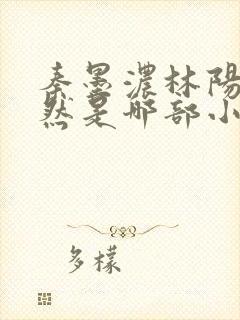 秦墨濃林陽
然是哪部小
多樣